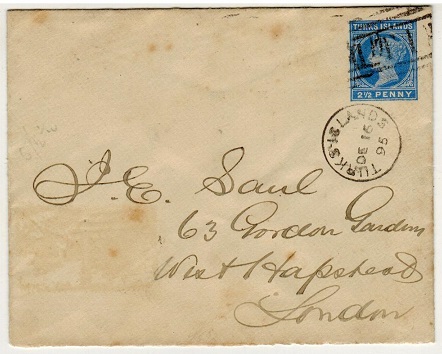 TURKS ISLANDS
2½ PENNY
TURKS-ISLANDS
DE 16
95
J. E. Saul
63 Gordon Gardens
West Hapstead
London